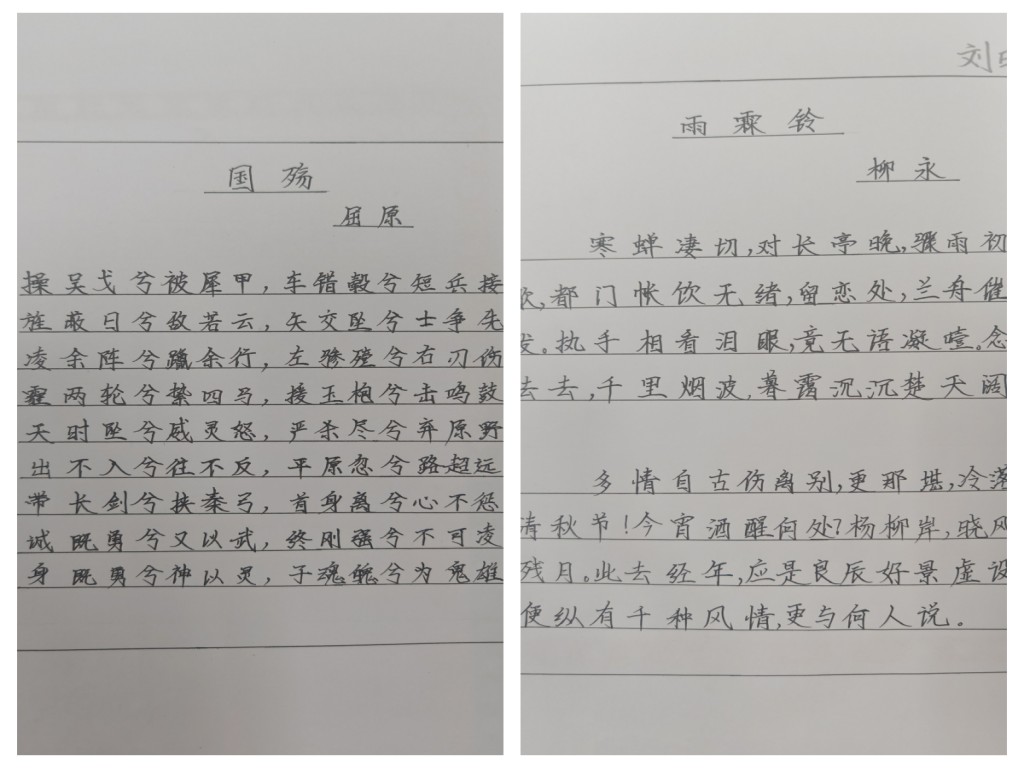 国殇
屈原
操吴戈兮被犀甲，车错毂兮短兵接
旌蔽日兮敌若云，矢交坠兮士争先
凌余阵兮躐余行，左骖殪兮右刃伤
霾两轮兮絷四马，援玉枹兮击鸣鼓
天时坠兮威灵怒，严杀尽兮弃原野
出不入兮往不反，平原忽兮路超远
带长剑兮挟秦弓，首身离兮心不惩
诚既勇兮又以武，终刚强兮不可凌
身既勇兮神以灵，子魂魄兮为鬼雄
刘
雨霖铃
柳永
寒蝉凄切,对长亭晚,骤雨初
歇,都门帐饮无绪,留恋处,兰舟催
发。执手相看泪眼,竟无语凝噎。念
去去,千里烟波,暮霭沉沉楚天阔
多情自古伤离别,更那堪,冷落
清秋节!今宵酒醒何处?杨柳岸,晓风
残月。此去经年,应是良辰好景虚设
便纵有千种风情,更与何人说。